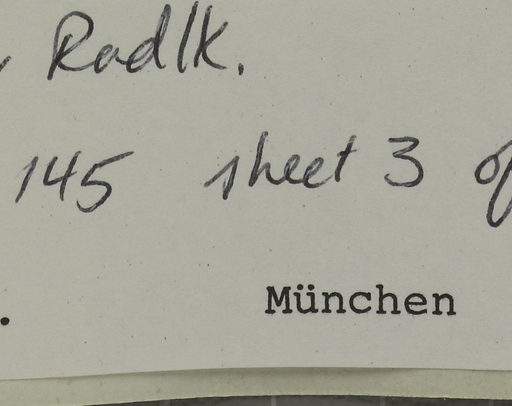 Radlk.
145 sheet 3 of
. München